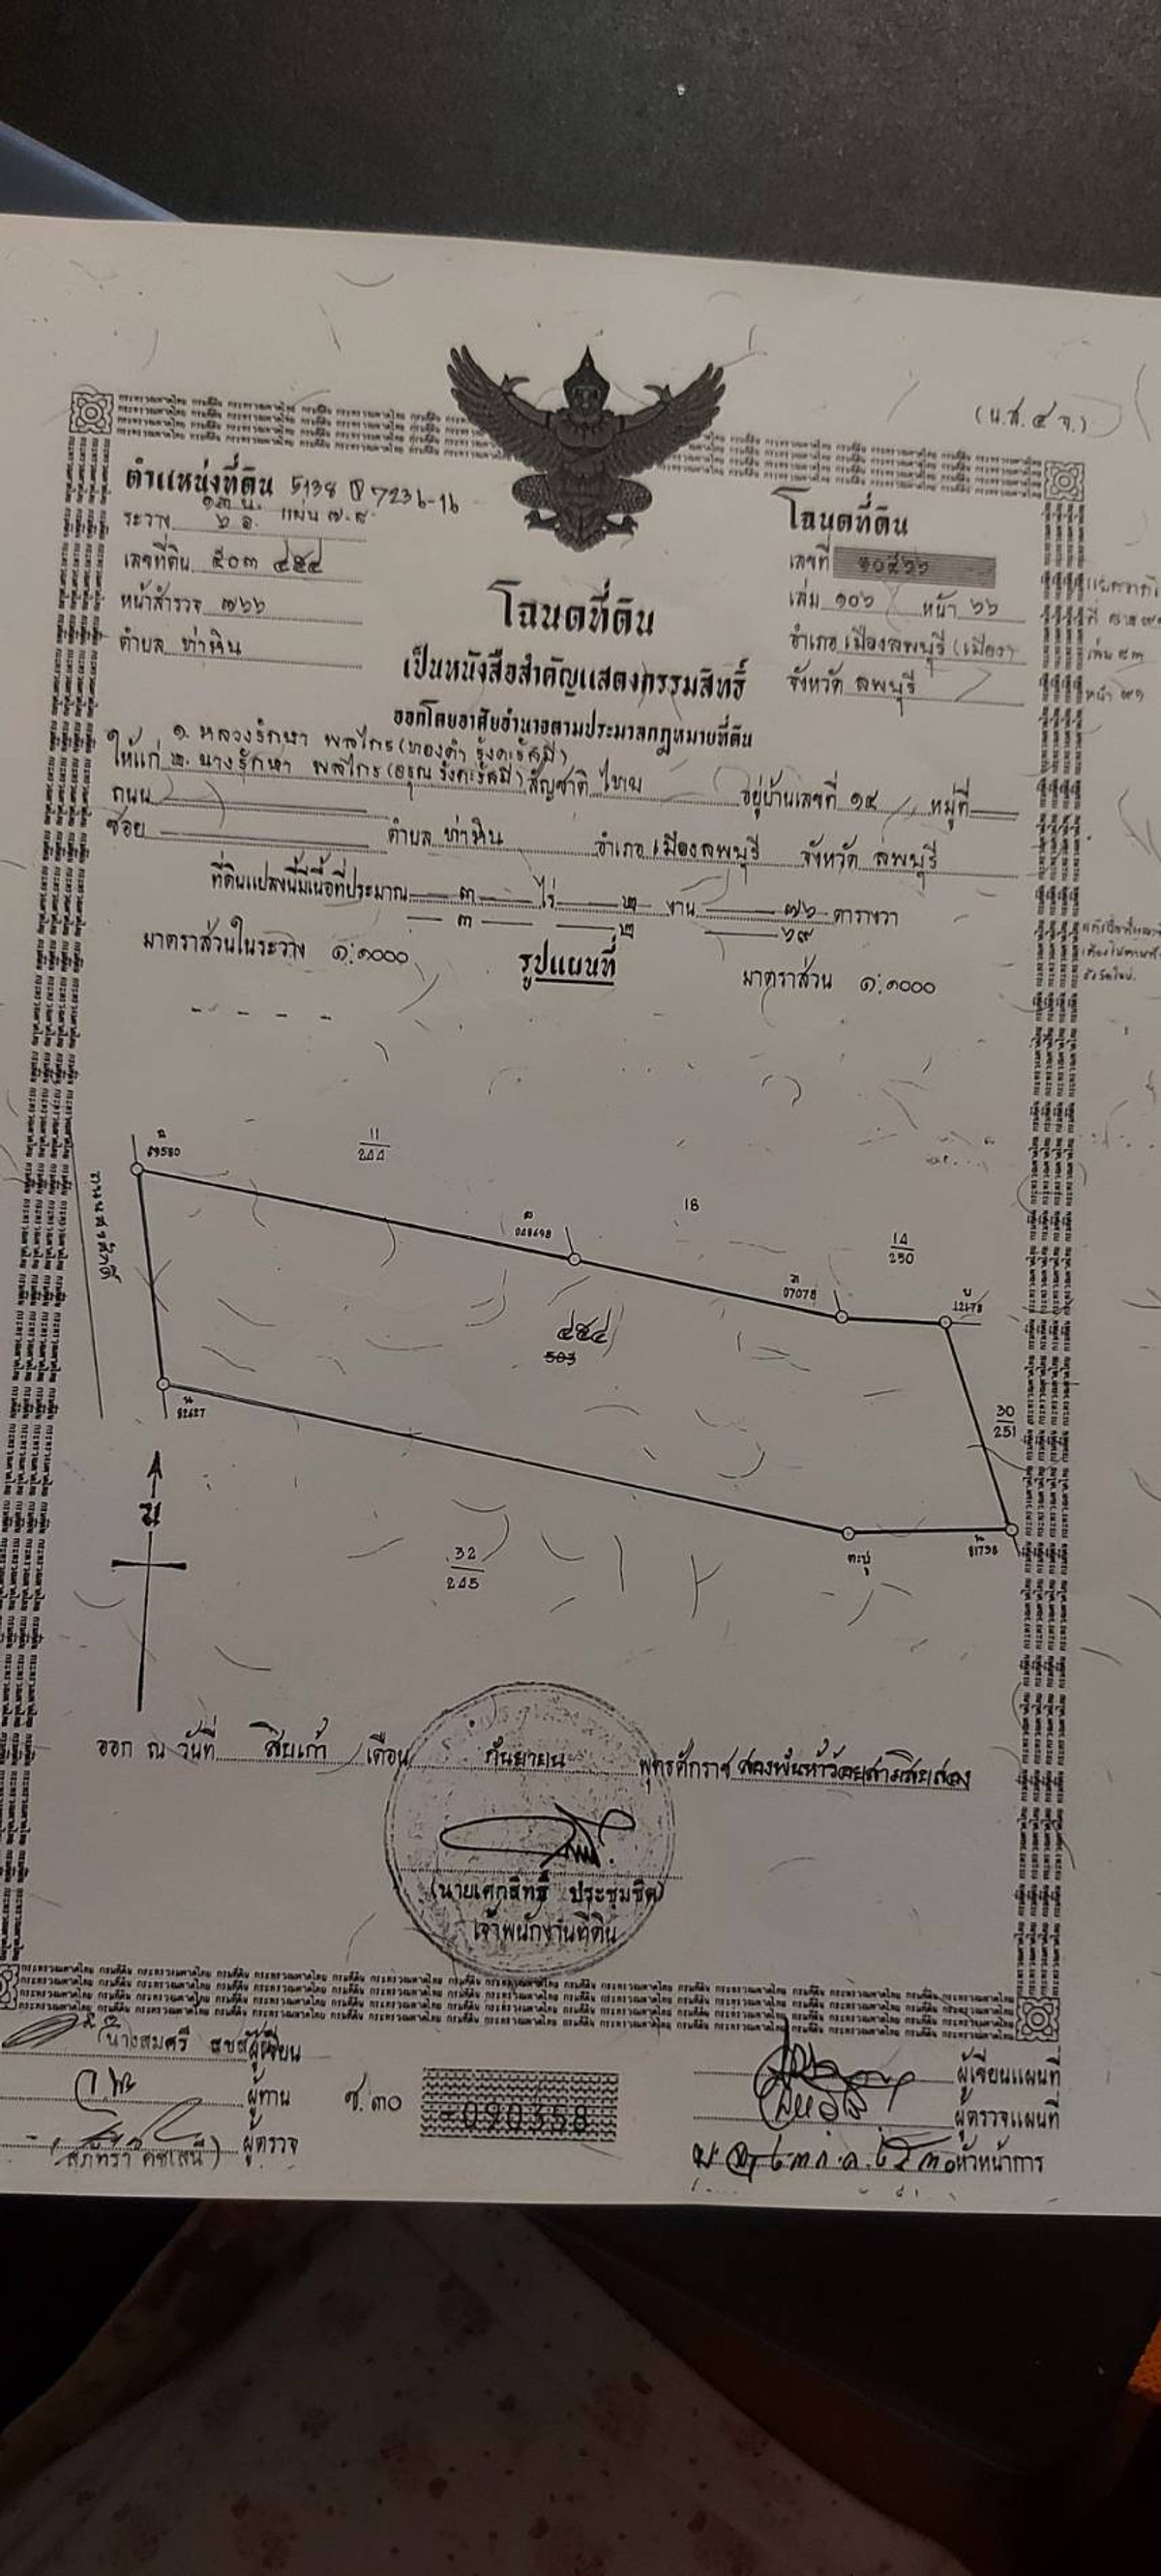 (น.ส.๔ จ.)
ตำแหน่งที่ดิน 5138 IV 7236-16
ระวาง ๑๓ น. ๖ อ. แผ่น ๗.๙.
เลขที่ดิน ๕๐๓ ๔๕๔
หน้าสำรวจ ๗๖๖
ตำบล ท่าหิน
โฉนดที่ดิน
เลขที่ ๑๐๕๖๖
เล่ม ๑๐๖ หน้า ๖๖
อำเภอ เมืองลพบุรี (เมือง)
จังหวัด ลพบุรี
โฉนดที่ดิน
เป็นหนังสือสำคัญแสดงกรรมสิทธิ์
ออกโดยอาศัยอำนาจตามประมวลกฎหมายที่ดิน
๑. หลวงรักษา พลไกร (ทองคำ รังคะรัสมี)
ให้แก่ ๒. นางรักษา พลไกร (อรุณ รังคะรัสมี) สัญชาติ ไทย อยู่บ้านเลขที่ ๑๕ หมู่ที่
ถนน
ซอย ตำบล ท่าหิน อำเภอ เมืองลพบุรี จังหวัด ลพบุรี
ที่ดินแปลงนี้มีเนื้อที่ประมาณ ๓ ไร่ ๒ งาน ๗๖ ตารางวา
๓ ๒ ๖๙
มาตราส่วนในระวาง ๑:๑๐๐๐ รูปแผนที่ มาตราส่วน ๑:๑๐๐๐
11
244
18
14
250
07078
12178
๔๕๔
503
30
251
น
82627
ตะปู
น
81798
32
245
น
ออก ณ วันที่ สิบเก้า เดือน กันยายน พุทธศักราช สองพันห้าร้อยสามสิบสอง
(นายเศกสิทธิ์ ประชุมชิต)
เจ้าพนักงานที่ดิน
(นางสมศรี ผู้เขียน
ผู้ทาน
ผู้ตรวจ
ช. ๓๐
090358
ผู้เขียนแผนที่
ผู้ตรวจแผนที่
หัวหน้าการ